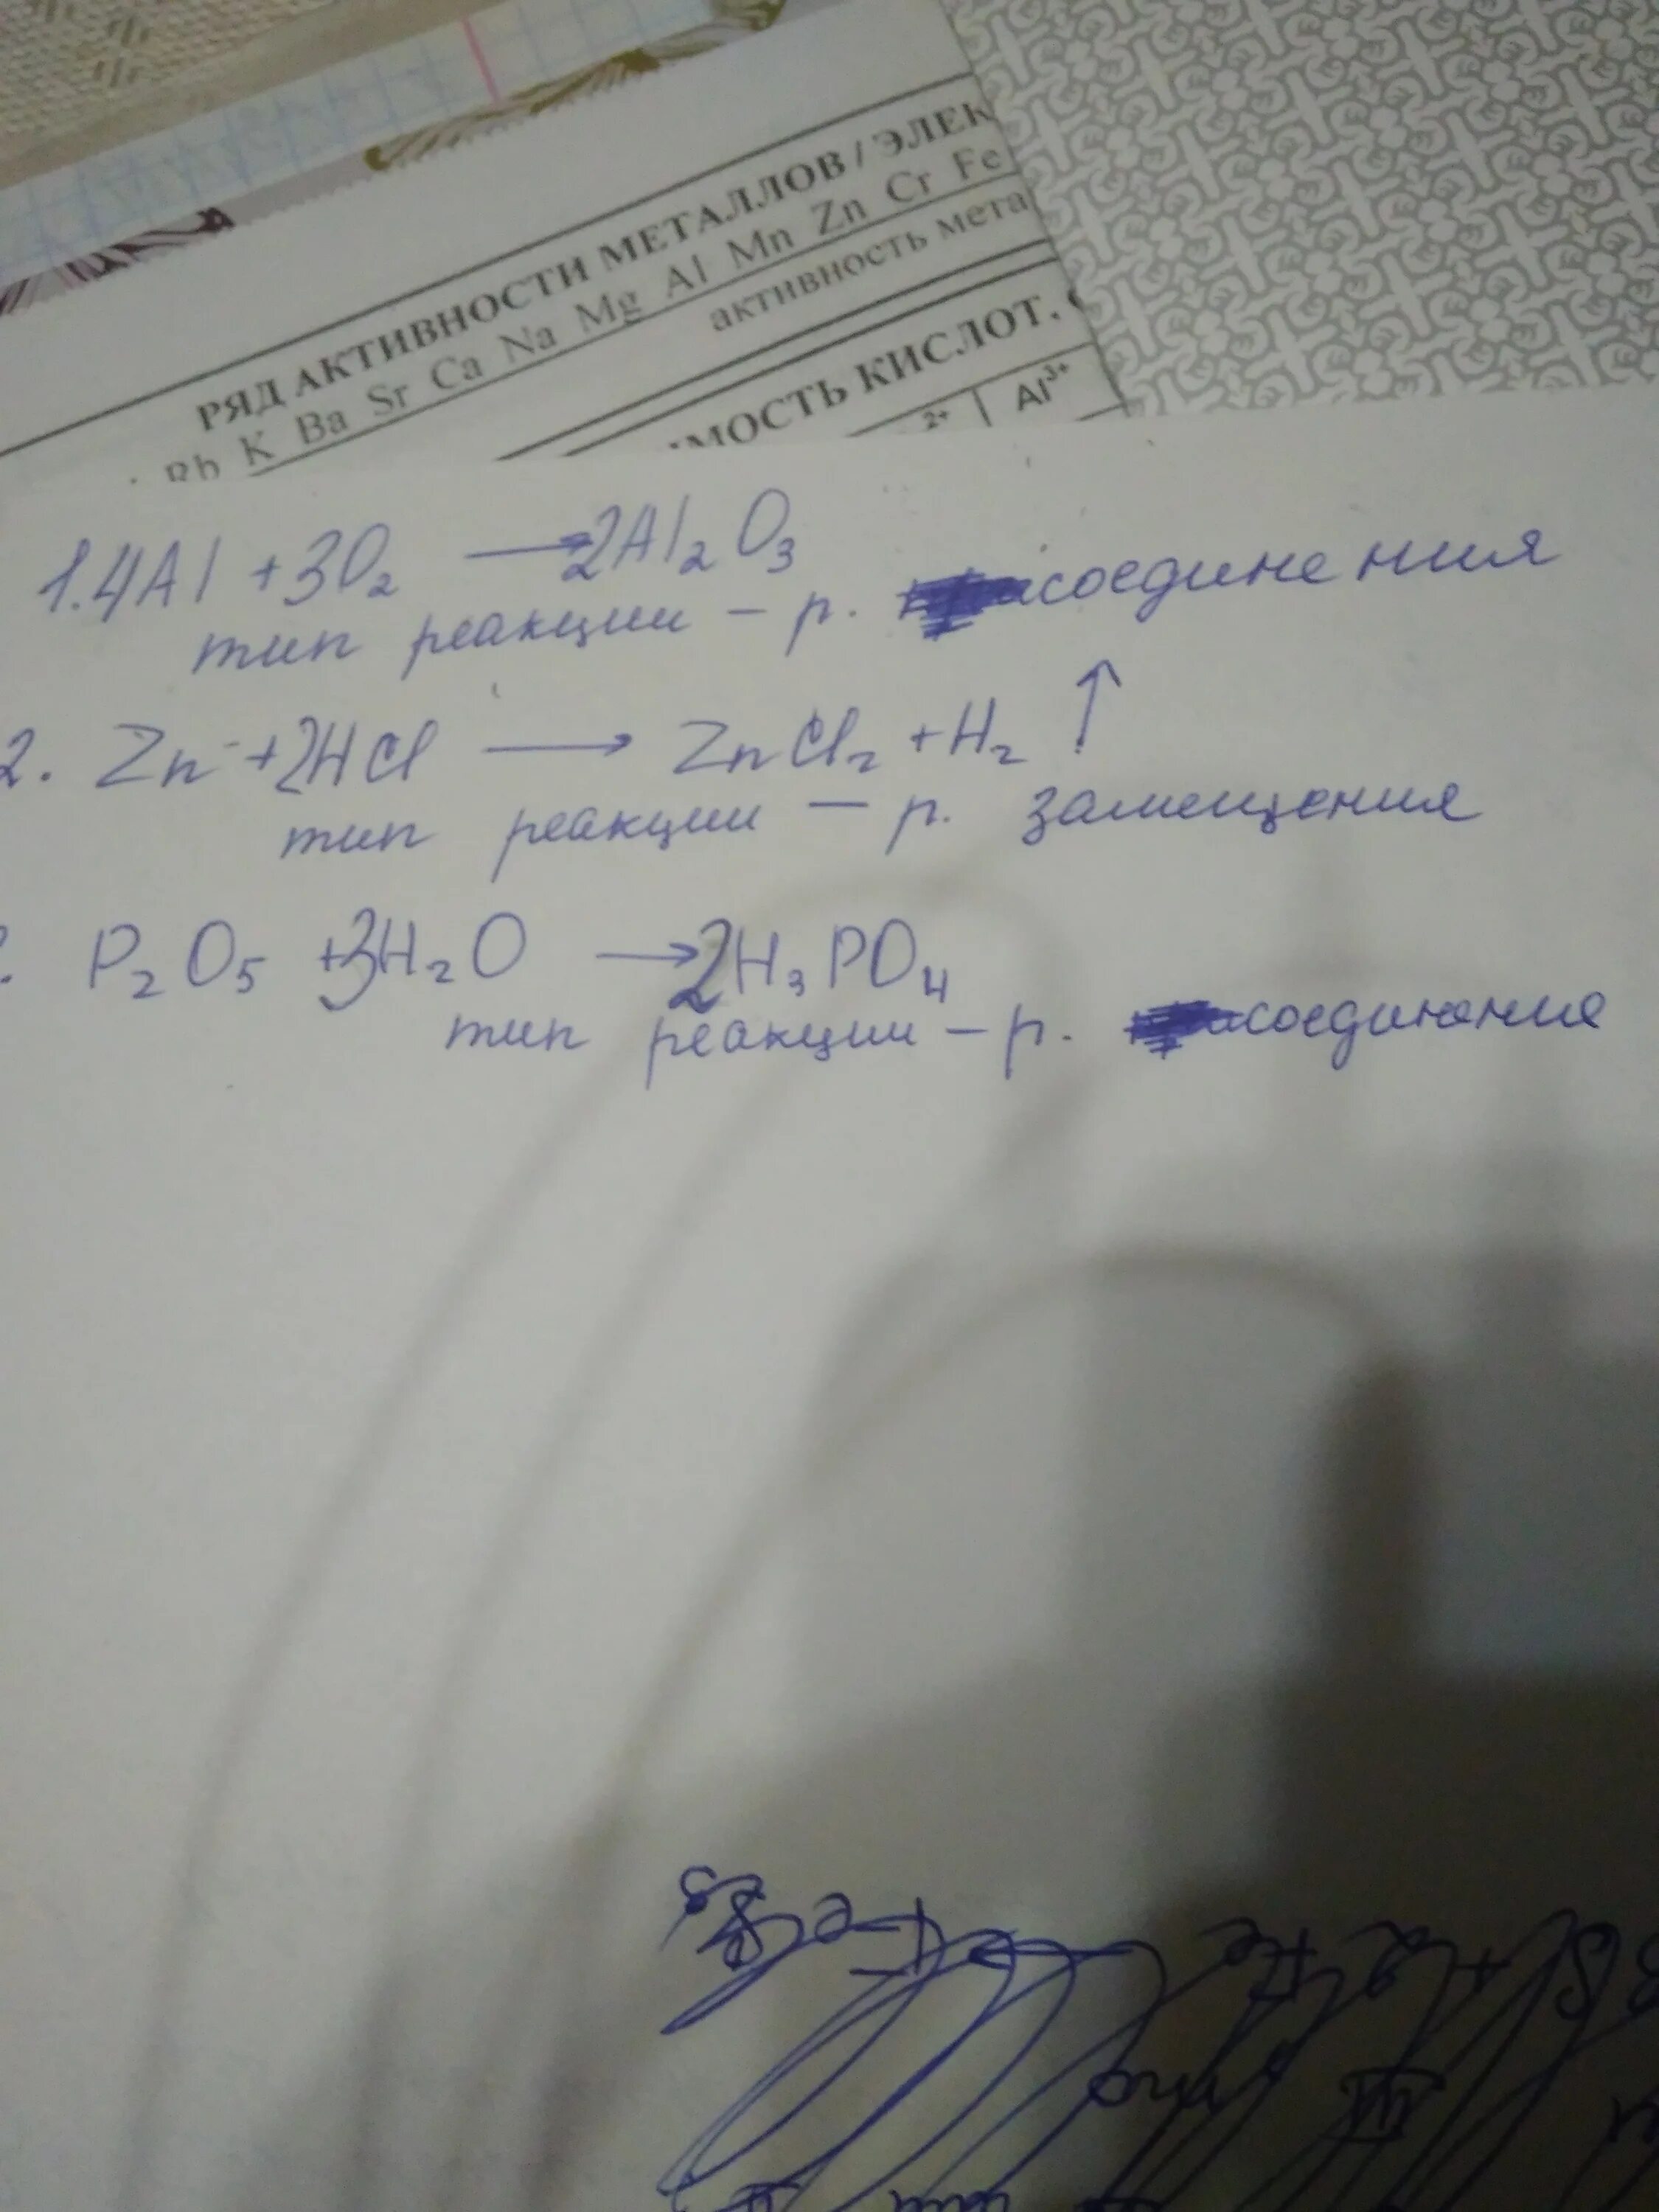 РЯД АКТИВНОСТИ МЕТАЛЛОВ / ЭЛЕК
Rb K Ba Sr Ca Na Mg Al Mn Zn Cr Fe
активность мета
МОСТЬ КИСЛОТ.
2+ Al³⁺
1. 4Al + 3O₂ → 2Al₂O₃
тип реакции – р. соединения
2. Zn + 2HCl → ZnCl₂ + H₂ ↑
тип реакции – р. замещения
P₂O₅ + 3H₂O → 2H₃PO₄
тип реакции – р. соединения